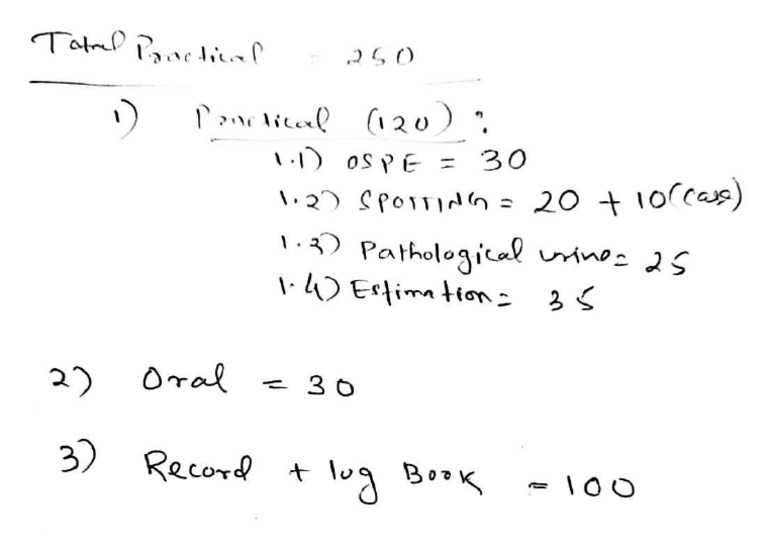 Total Practical = 250
1) Practical (120) :
1.1) OSPE = 30
1.2) SPOTTING = 20 + 10 (case)
1.3) Pathological urine = 25
1.4) Estimation = 35
2) Oral = 30
3) Record + log Book = 100